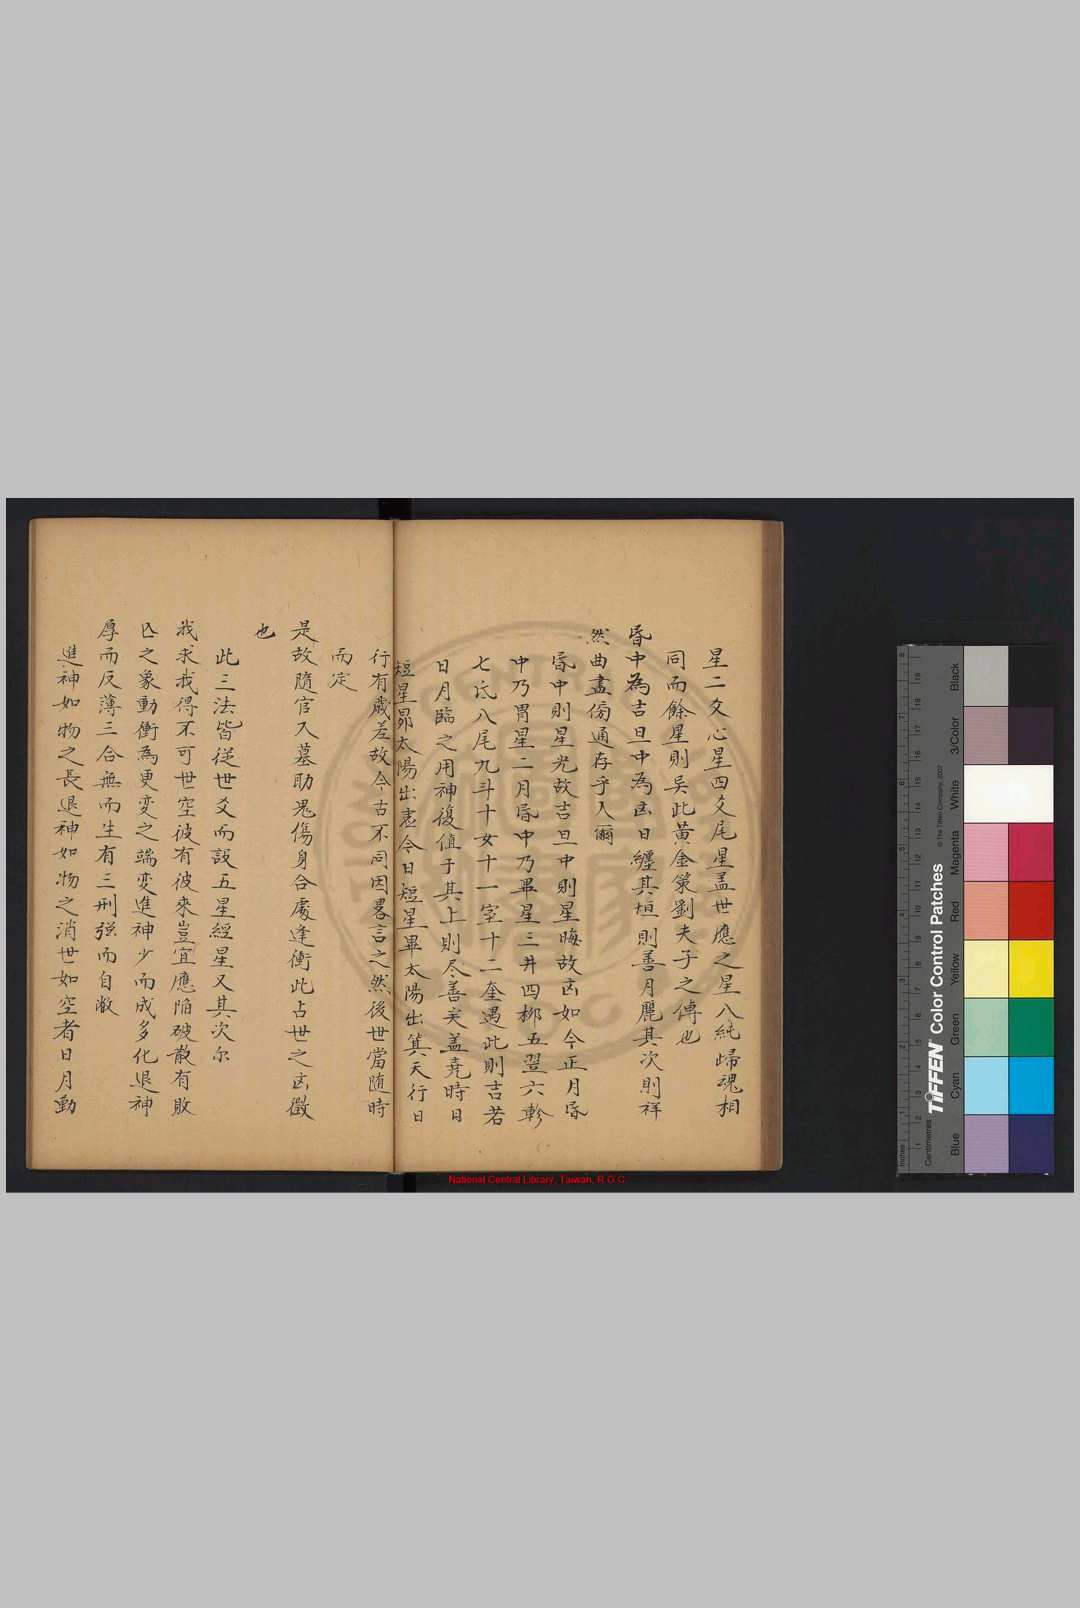 星二交心星四交尾星盖世應之星八純歸魂相
同而餘星則吴此黄金策劉夫子之傳也
昏中為吉旦中為凶日纏其垣則善月麗其次則祥
然曲盡傍通存乎人爾
昏中則星光故吉旦中則星晦故凶如今正月昏
中乃胃星二月昏中乃畢星三井四柳五翌六軫
七氐八尾九斗十女十一室十二奎遇此則吉若
日月臨之用神復值于其上則尽善矣盖堯時日
短星昴太陽出虚今日短星畢太陽出箕天行日
行有歲差故今古不同因畧言之然後世當随時
而定
是故隨官入墓助鬼傷身合處逢衝此占世之凶徵
也
此三法皆從世爻而設五星經星又其次尔
我求我得不可世空彼有彼來豈宜應陥破散有敗
亾之象動衝為更变之端变進神少而成多化退神
厚而反薄三合無而生有三刑强而自敝
進神如物之長退神如物之消世如空者日月動
National Central Library, Taiwan, R.O.C
TIFFEN Color Control Patches
© The Tiffen Company, 2007
Centimetres
Inches
Blue Cyan Green Yellow Red Magenta White 3/Color Black